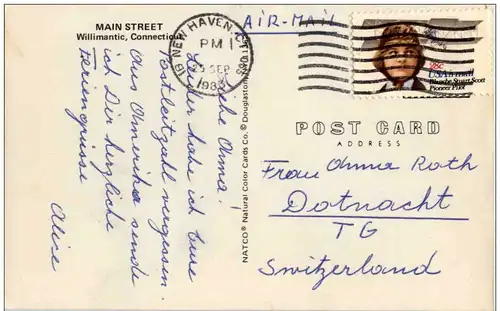 MAIN STREET
Willimantic, Connecticut
AIR-MAIL
NEW HAVEN, CT
PM
25 SEP
1983
28c
USAirmail
Blanche Stuart Scott
Pioneer Pilot
Liebe Anna!
Leider habe ich Eure
Postleitzahl vergessen.
Aus Amerika sende
ich Dir herzliche
Feriengrüsse
Alice
NATCO® Natural Color Cards Co. © Douglaston
POST CARD
ADDRESS
Frau Anna Roth
Dotnacht
TG
Switzerland